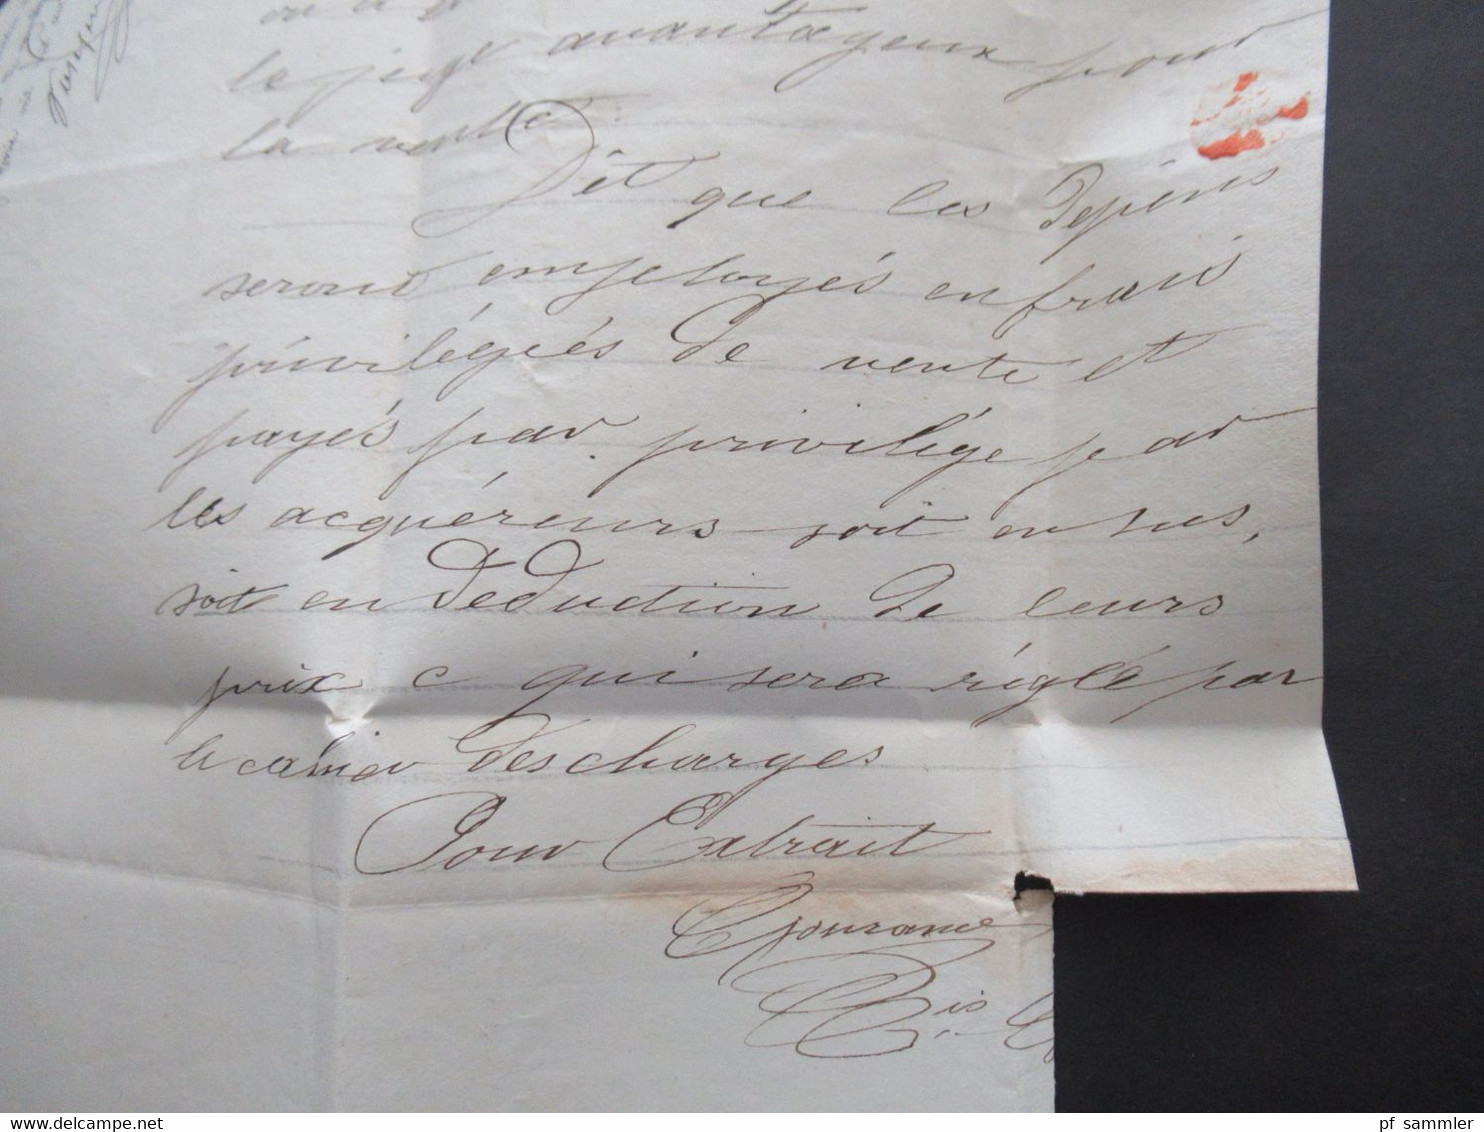 le juge avantageux pour
la vente.
Dit que les dépens
seront employés en frais
privilégiés de vente et
payés par privilége par
les acquéreurs soit en sus,
soit en déduction de leurs
prix c qui sera réglé par
le cahier des charges
Pour Extrait
delcampe.net
pf_sammler